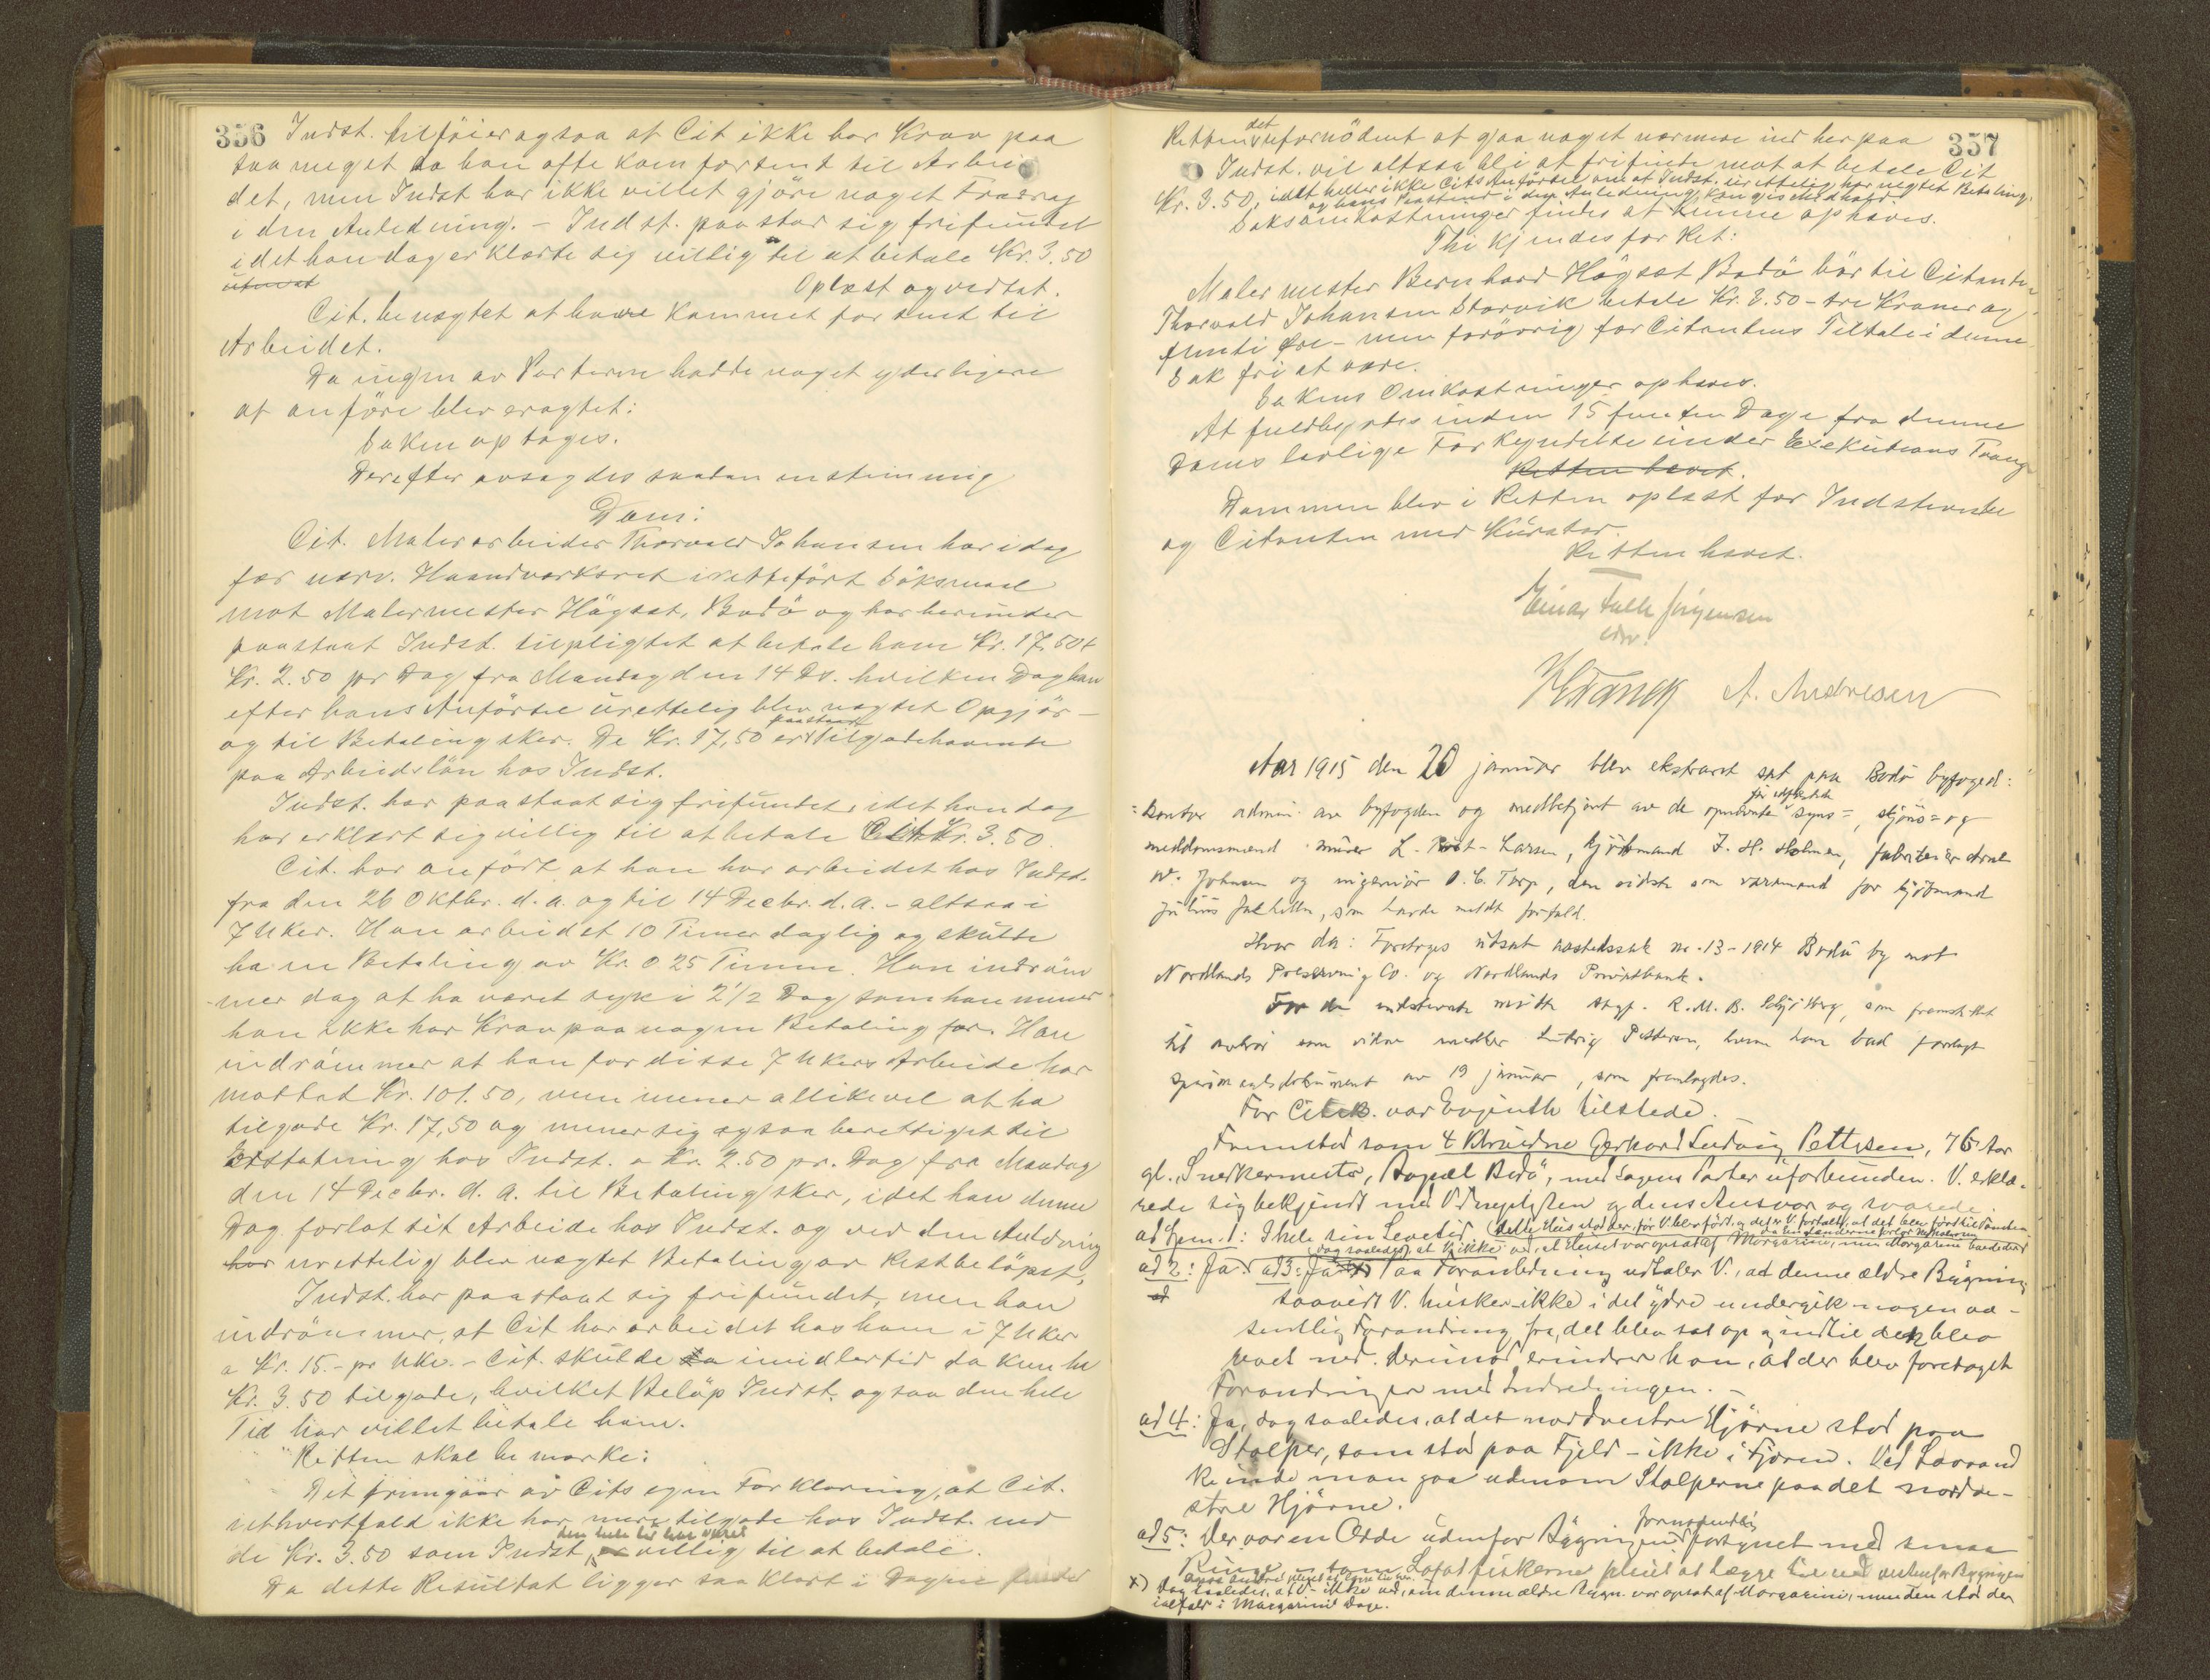 356
Indst. tilföier ogsaa at Cit ikke har Krav paa
saa meget da han ofte kom forsent til Arbei
det, men Indst har ikke villet gjöre noget Fradrag
i den Anledning. - Indst. paastod sig frifundet
idet han dog erklærte sig villig til at betale Kr. 3.50
Oplæst og vedtat.
Cit. benegtet at have kommet for sent til
Arbeidet.
Da ingen av Parterne hadde noget yderligere
at anföre blev eragtet:
Saken optages.
Derefter avsagdes saadan enstemmig
Dom:
Cit. Malerarbeider Thorvald Johansen har idag
for nærv. Haandverksret iretteført Söksmaal
mot Malermester Högset, Bodö og har herunder
paastaat Indst. tilpligtet at betale ham Kr. 17,50 +
Kr. 2.50 pr Dag fra Mandag den 14 Ds. hvilken Dag han
efter hans Anförsel urettelig blev negtet Opgjör -
og til Betaling sker. De Kr. 17,50 er paastaat tilgodehavende
paa Arbeidslön hos Indst.
Indst. har paastaat sig frifundet, idet han dog
har erklært sig villig til at betale Cit Kr. 3.50.
Cit. har anfört at han har arbeidet hos Indst.
fra den 26 Oktbr. d. a. og til 14 Decbr. d. a. - altsaa i
7 Uker. Han arbeidet 10 Timer daglig og skulde
ha en Betaling av Kr. 0.25 Timen. Han indröm
mer dog at ha været syk i 2 1/2 Dag som han mener
han ikke har Krav paa nogen Betaling for. Han
indrömmer at han for disse 7 Ukers Arbeide har
mottat Kr. 101.50, men mener allikevel at ha
tilgode Kr. 17,50 og mener sig ogsaa berettiget til
Erstatning hos Indst. a Kr. 2.50 pr. Dag fra Mandag
den 14 Decbr. d. a. til Betaling sker, idet han denne
Dag forlot sit Arbeide hos Indst. og ved den Anledning
har urettelig blev negtet Betaling av Restbelöpet.
Indst. har paastaat sig frifundet, men han
indrömmer, at Cit har arbeidet hos ham i 7 Uker
a Kr. 15.- pr Uke. - Cit. skulde imidlertid da kun ha
Kr. 3.50 tilgode, hvilket Belöp Indst. ogsaa den hele
Tid har villet betale ham.
Retten skal bemærke:
Det fremgaar av Cits egen Forklaring, at Cit.
iethvertfald ikke har mere tilgode hos Indst. end
de Kr. 3.50 som Indst. den hele tid har været villig til at betale.
Da dette Resultat ligger saa klart i Dagen finder
357
Retten det ufornödent at gaa noget nærmere ind herpaa
Indst. vil altsaa bli at frifinde mot at betale Cit
Kr. 3.50, idet heller ikke Cits Anförsel om at Indst. urettelig har negtet Betaling,
og hans Paastand i den Anledning, kan gis Medhold.
Saksomkostninger findes at kunne ophæves.
Thi kjendes for Ret:
Maler mester Bernhard Högset Bodö bör til Citanten
Thorvald Johansen Storvik betale Kr. 3.50 - tre Kroner og
femti Öre - men forövrig for Citantens Tiltale i denne
Sak fri at være.
Sakens Omkostninger ophæves.
At fuldbyrdes inden 15 femten Dage fra denne
Doms lovlige Forkyndelse under Exekutions Tvang
Retten hævet.
Dommen blev i Retten oplæst for Indstevnte
og Citanten med Kurator.
Retten hævet.
Einar Falk Jörgensen
A. Andresen
Aar 1915 den 20 januar blev ekstraret sat paa Bodö byfoged:
=kontor admin. av byfogden og medbetjent av de opnævnte syns=, skjöns= og
meddomsmænd murer L. Rist-Larsen, kjöbmand J. H. Holmen, fabrikeier Arnt
W. Johnsen og ingeniör O. C. Torp, den sidste som varamand for kjöbmand
Julius Jakhelln, som havde meldt forfald.
Hvor da: Foretages utsat gjæstesak nr. 13 - 1914 Bodö by mot
Nordlands Preserving Co. og Nordlands Privatbank.
For de indstevnte mötte sagf. R. M. B. Schjölberg, som fremstillet
til avhör som vidne snedker Ludvig Pettersen, hvem han bad forelagt
spörsmaalsdokument av 19 januar, som fremlagdes.
For Cit. var Evjenth tilstede.
Fremstod som 4 Vidne Gerhard Ludvig Pettersen, 76 Aar
gl. Snedkermester, Bopæl Bodö, med Sagens Parter uforbunden. V. erklæ-
rede sig bekjendt med Vidnepligten og dens Ansvar og svarede
ad Spm. 1: I hele sin Levetid
ad 2: Ja. ad 3: Ja Paa Foranledning udtaler V., at denne ældre Bygning
saavidt V. husker ikke i det ydre undergik nogen væ-
sentlig Forandring fra det blev sat op og indtil den blev
revet ned. derimod erindrer han, at der blev foretaget
Forandringer med Indredningen. -
ad 4: Ja, dog saaledes, at det nordvestre Hjörne stod paa
Stolper, som stod paa Fjeld - ikke i Fjæren. Ved Lavvand
kunde man gaa udenom Stolperne paa det nordve-
stre Hjörne.
ad 5: Der var en Odde udenfor Bygningen fornemmelig forsynet med smaa
Ringe som Lofotfiskerne pleiet at lægge til ved vestenfor Bygningen
x) Dog saaledes, at V. ikke ved, om denne ældre Bygn. var opsat af Morgarini, men den stod der
ialfald i Morgarinis Dage.